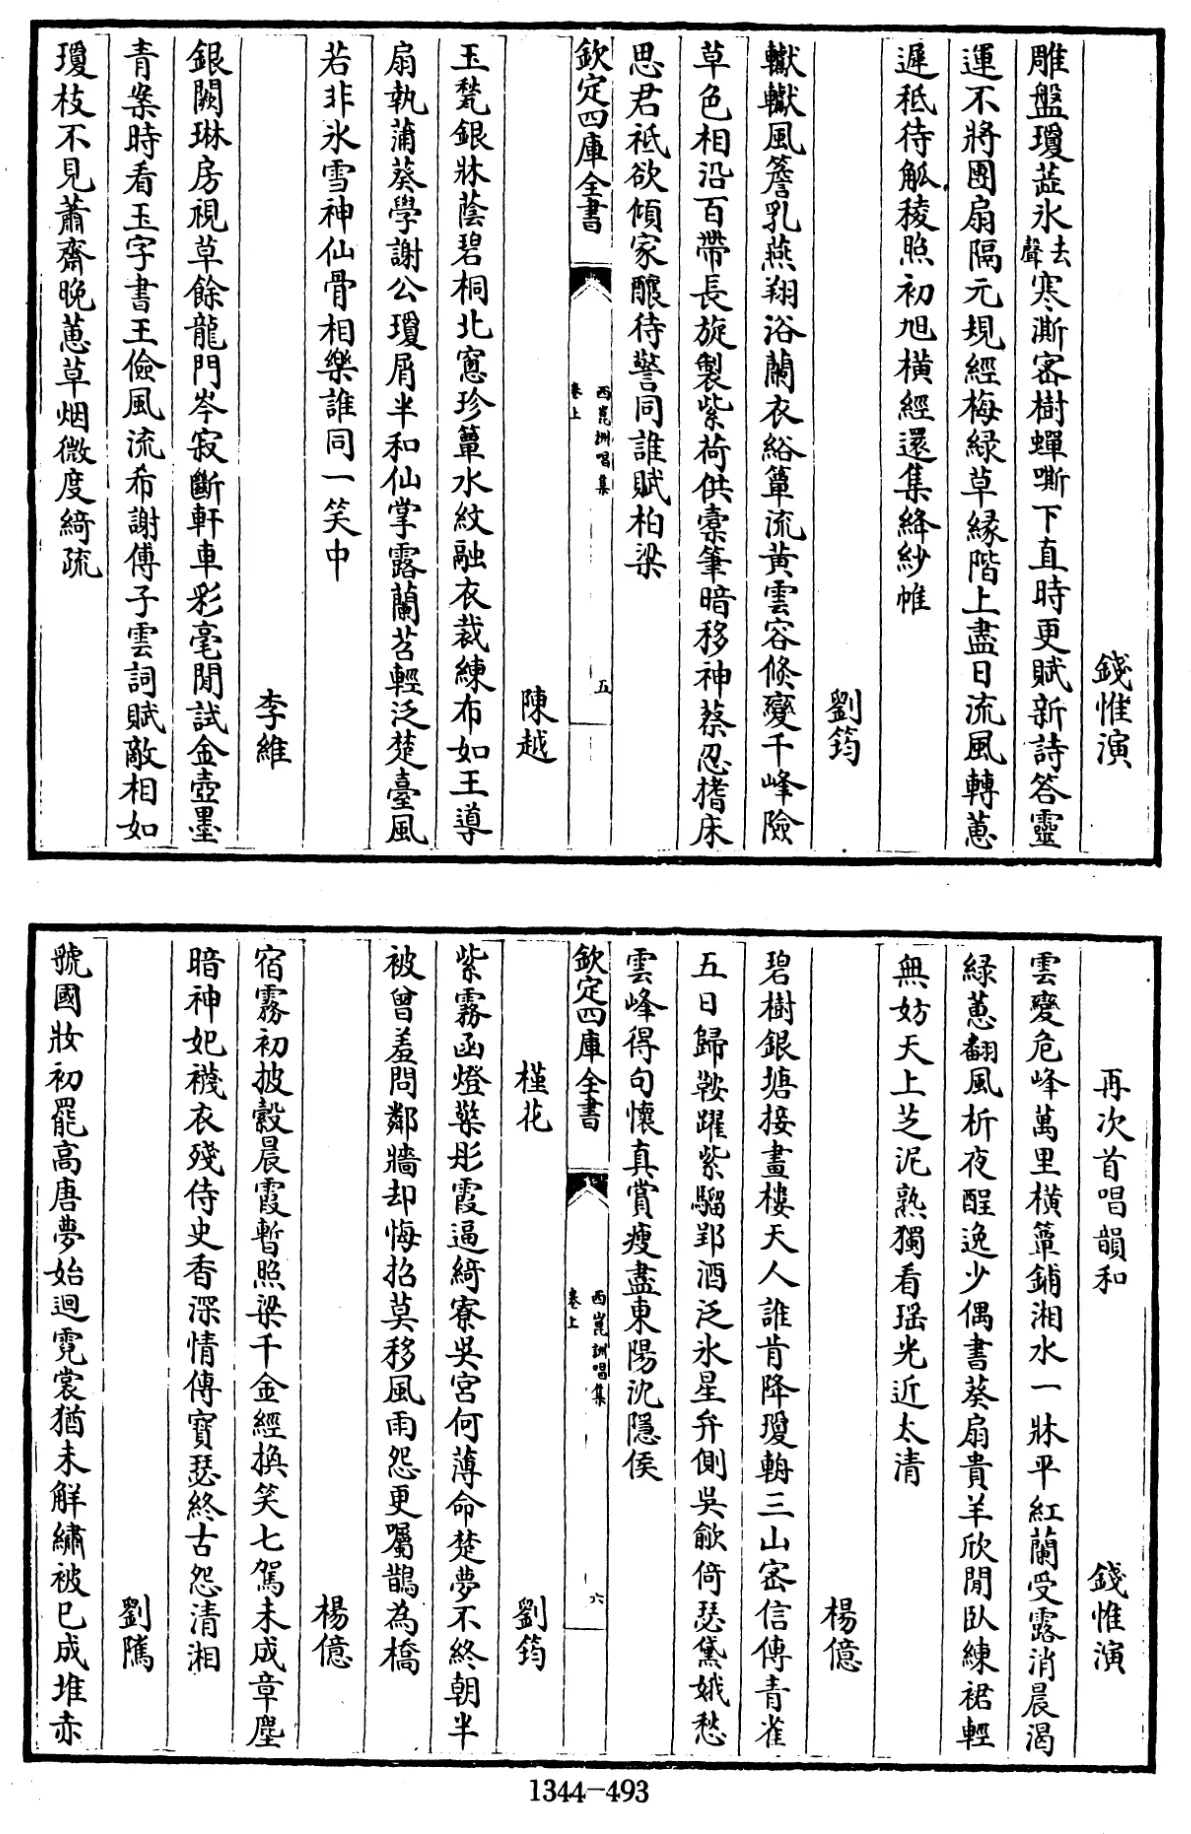 錢惟演
雕盤瓊蘂氷去聲寒澌密樹蟬嘶下直時更賦新詩答靈
運不將團扇隔元規經梅緑草縁階上盡日流風轉蕙
遲秪待觚稜照初旭横經還集絳紗帷
劉筠
轗轗風簷乳燕翔浴蘭衣綌簟流黄雲容倏變千峰險
草色相沿百帶長旋製紫荷供橐筆暗移神蔡忍搘床
思君祗欲傾家釀待詧同誰賦柏梁
欽定四庫全書
西崑詶唱集
卷上
五
陳越
玉甃銀牀蔭碧桐北窻珍簟水紋融衣裁練布如王導
扇執蒲葵學謝公瓊屑半和仙掌露蘭苕輕泛楚臺風
若非氷雪神仙骨相樂誰同一笑中
李維
銀闕琳房視草餘龍門岑寂斷軒車彩毫閒試金壺墨
青案時看玉字書王儉風流希謝傅子雲詞賦敵相如
瓊枝不見蕭齋晩蕙草烟微度綺疏
再次首唱韻和
錢惟演
雲變危峰萬里横簟鋪湘水一牀平紅蘭受露消晨渴
緑蕙翻風析夜酲逸少偶書葵扇貴羊欣閒臥練裙輕
無妨天上芝泥熟獨看瑶光近太清
楊億
碧樹銀塘接畫樓天人誰肯降瓊輈三山密信傳青雀
五日歸鞍躍紫騮郢酒泛氷星弁側吳歈倚瑟黛娥愁
雲峰得句懷真賞瘦盡東陽沈隱侯
欽定四庫全書
西崑詶唱集
卷上
六
槿花
劉筠
紫霧函燈蘂彤霞逼綺寮吳宮何薄命楚夢不終朝半
被曾羞問鄰牆却悔招莫移風雨怨更囑鵲為橋
楊億
宿霧初披縠晨霞暫照梁千金經換笑七駕未成章塵
暗神妃襪衣殘侍史香深情傳寳瑟終古怨清湘
劉隲
虢國妝初罷高唐夢始迴霓裳猶未解繡被已成堆赤
1344-493